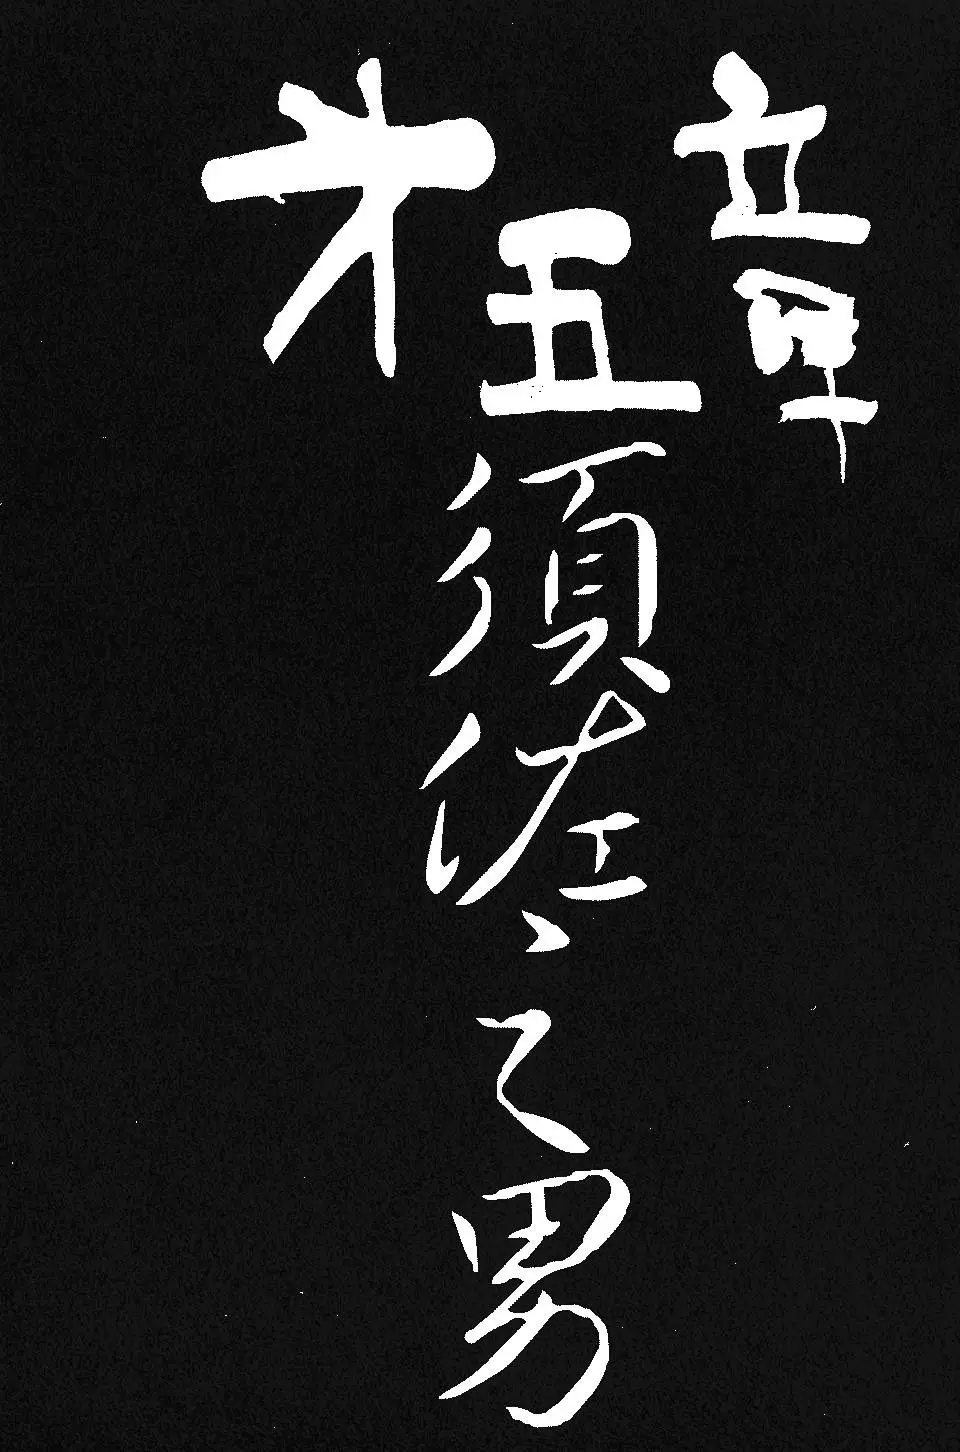 才五章
須佐之男